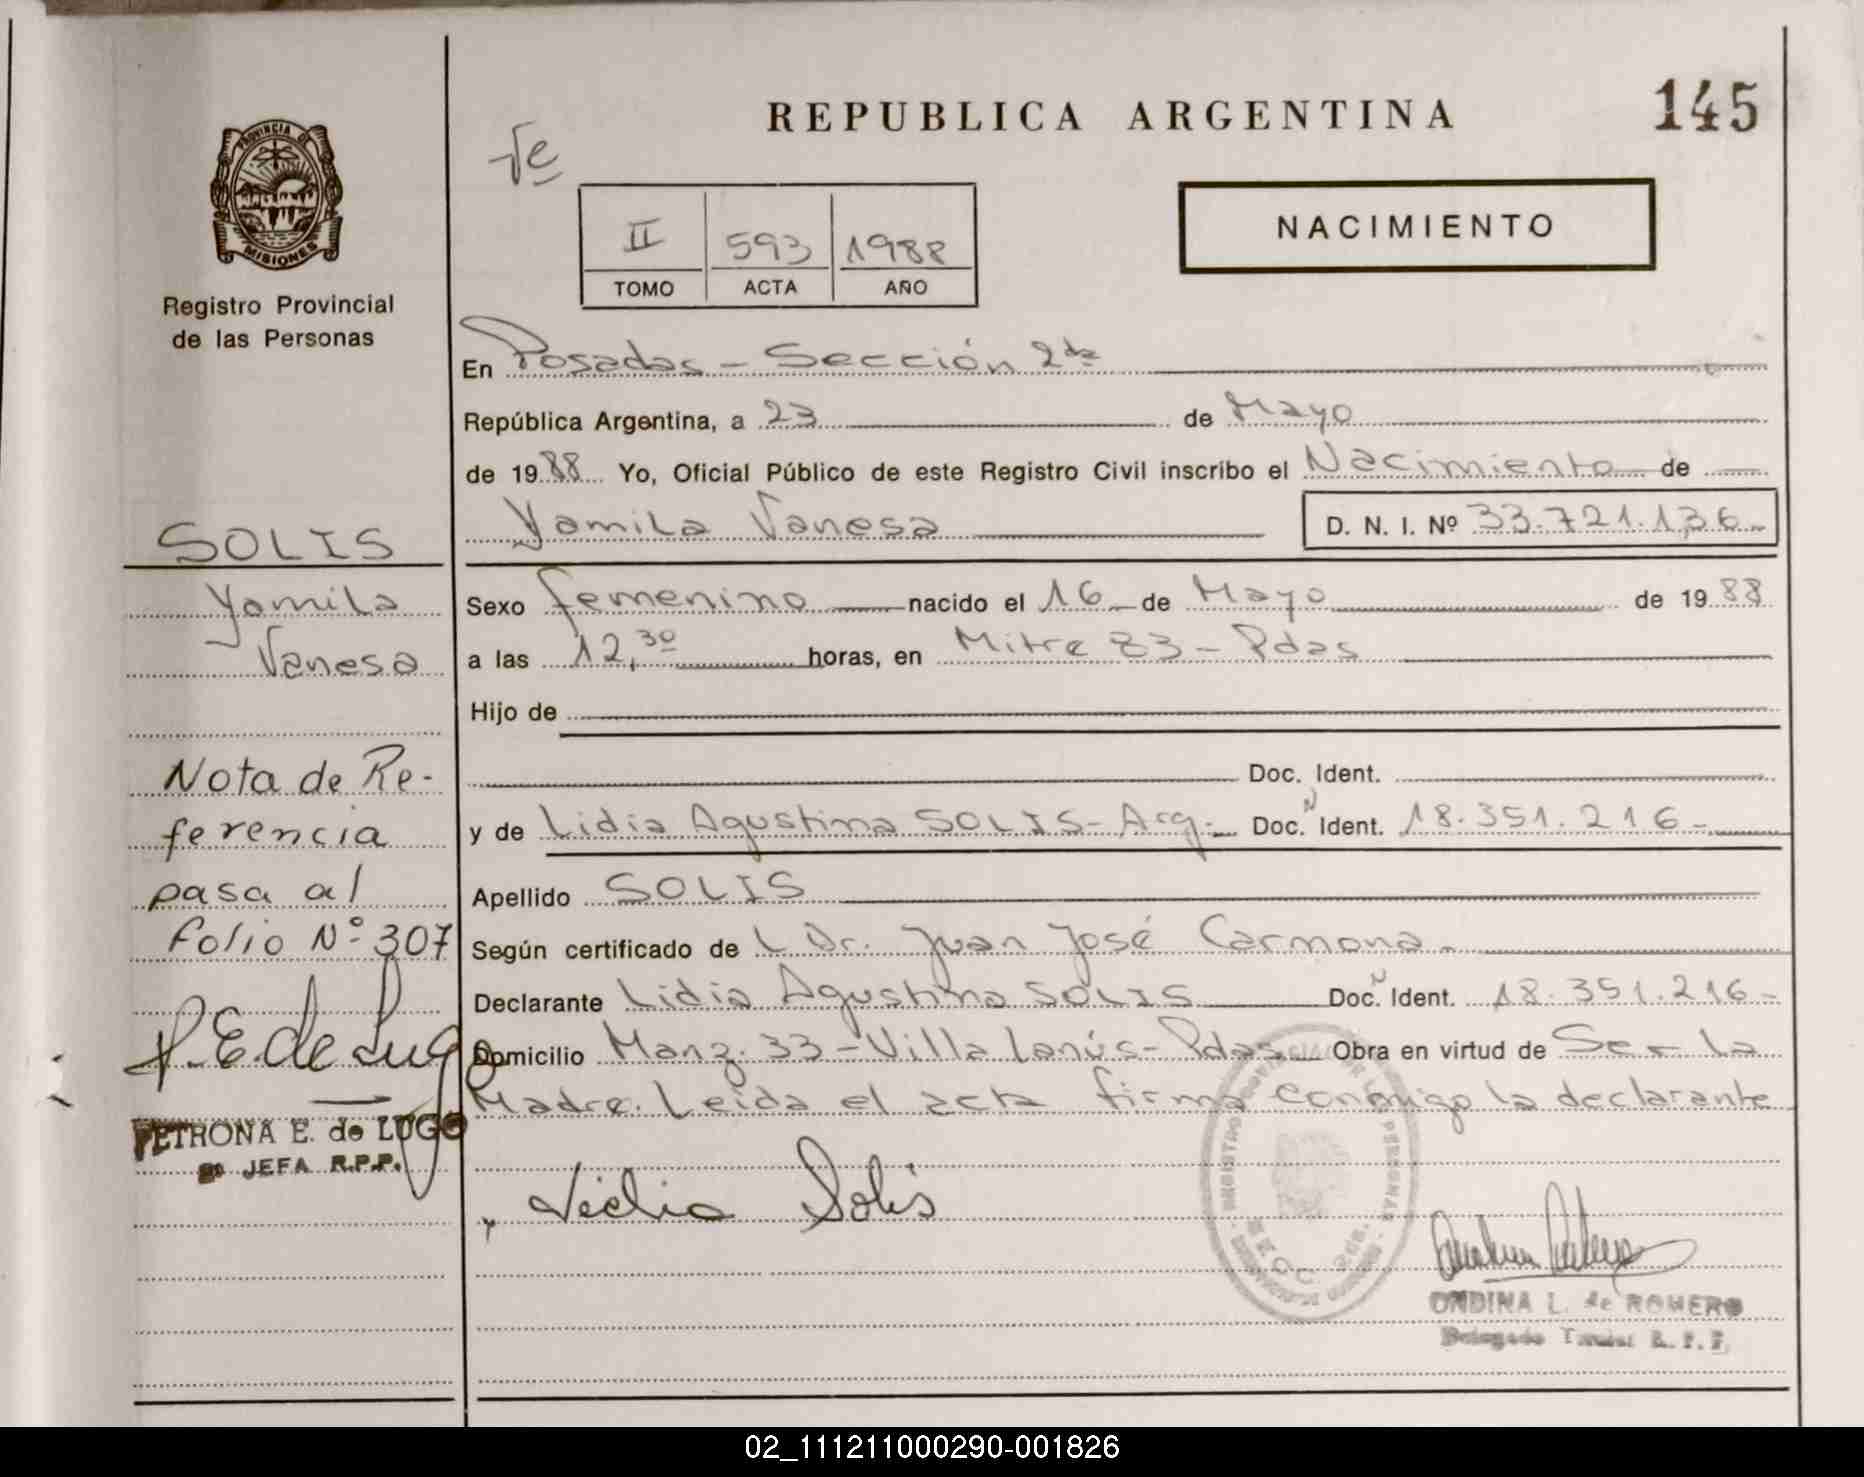 REPUBLICA ARGENTINA
145
PROVINCIA DE
MISIONES
Registro Provincial
de las Personas
II 593 1988
TOMO ACTA AÑO
NACIMIENTO
En Posadas - Sección 2da
República Argentina, a 23 de Mayo
de 1988 Yo, Oficial Público de este Registro Civil inscribo el Nacimiento de
Yamila Vanesa D. N. I. Nº 33.721.136
Sexo femenino nacido el 16 de Mayo de 1988
a las 12,30 horas, en Mitre 83 - Pdas
Hijo de
Doc. Ident.
y de Lidia Agustina SOLIS - Arg. Doc. N Ident. 18.351.216 -
Apellido SOLIS
Según certificado de L Dr. Juan José Carmona -
Declarante Lidia Agustina SOLIS Doc. N Ident. 18.351.216 -
Domicilio Manz. 33 - Villa Lanús - Pdas Obra en virtud de Ser la
Madre. Leida el acta firma conmigo la declarante
Lidia Solis
ONDINA L. de ROMERO
SOLIS
Yamila
Vanesa
Nota de Re-
ferencia
pasa al
folio Nº 307
P. E. de Lugo
PETRONA E. de LUGO
JEFA R.P.P.
02_111211000290-001826